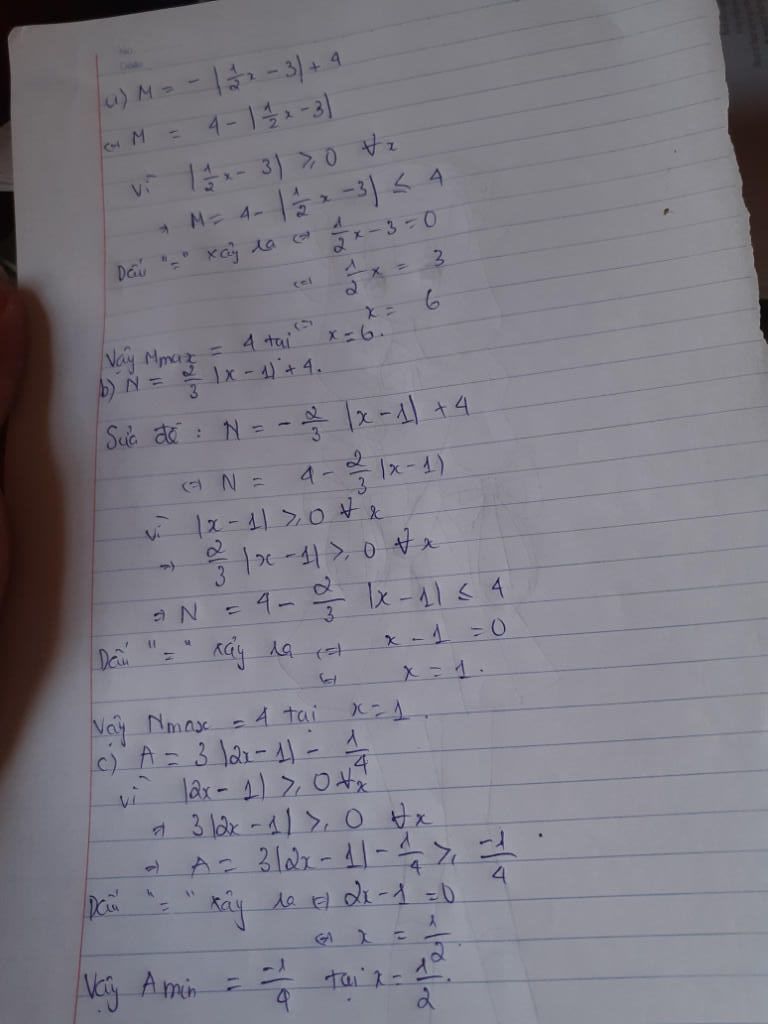 No.
Date
a) M = - |1/2x - 3| + 4
⇔ M = 4 - |1/2x - 3|
vì |1/2x - 3| ≥ 0 ∀x
⇒ M = 4 - |1/2x - 3| ≤ 4
Dấu "=" xảy ra ⇔ 1/2x - 3 = 0
⇔ 1/2x = 3
⇔ x = 6
Vậy Mmax = 4 tại x = 6.
b) N = 2/3 |x - 1| + 4.
Sửa đề : N = - 2/3 |x - 1| + 4
⇔ N = 4 - 2/3 |x - 1|
vì |x - 1| ≥ 0 ∀x
⇒ 2/3 |x - 1| ≥ 0 ∀x
⇒ N = 4 - 2/3 |x - 1| ≤ 4
Dấu "=" xảy ra ⇔ x - 1 = 0
⇔ x = 1.
Vậy Nmax = 4 tại x = 1.
c) A = 3 |2x - 1| - 1/4
vì |2x - 1| ≥ 0 ∀x
⇒ 3|2x - 1| ≥ 0 ∀x
⇒ A = 3|2x - 1| - 1/4 ≥ -1/4
Dấu "=" xảy ra ⇔ 2x - 1 = 0
⇔ x = 1/2.
Vậy Amin = -1/4 tại x = 1/2.